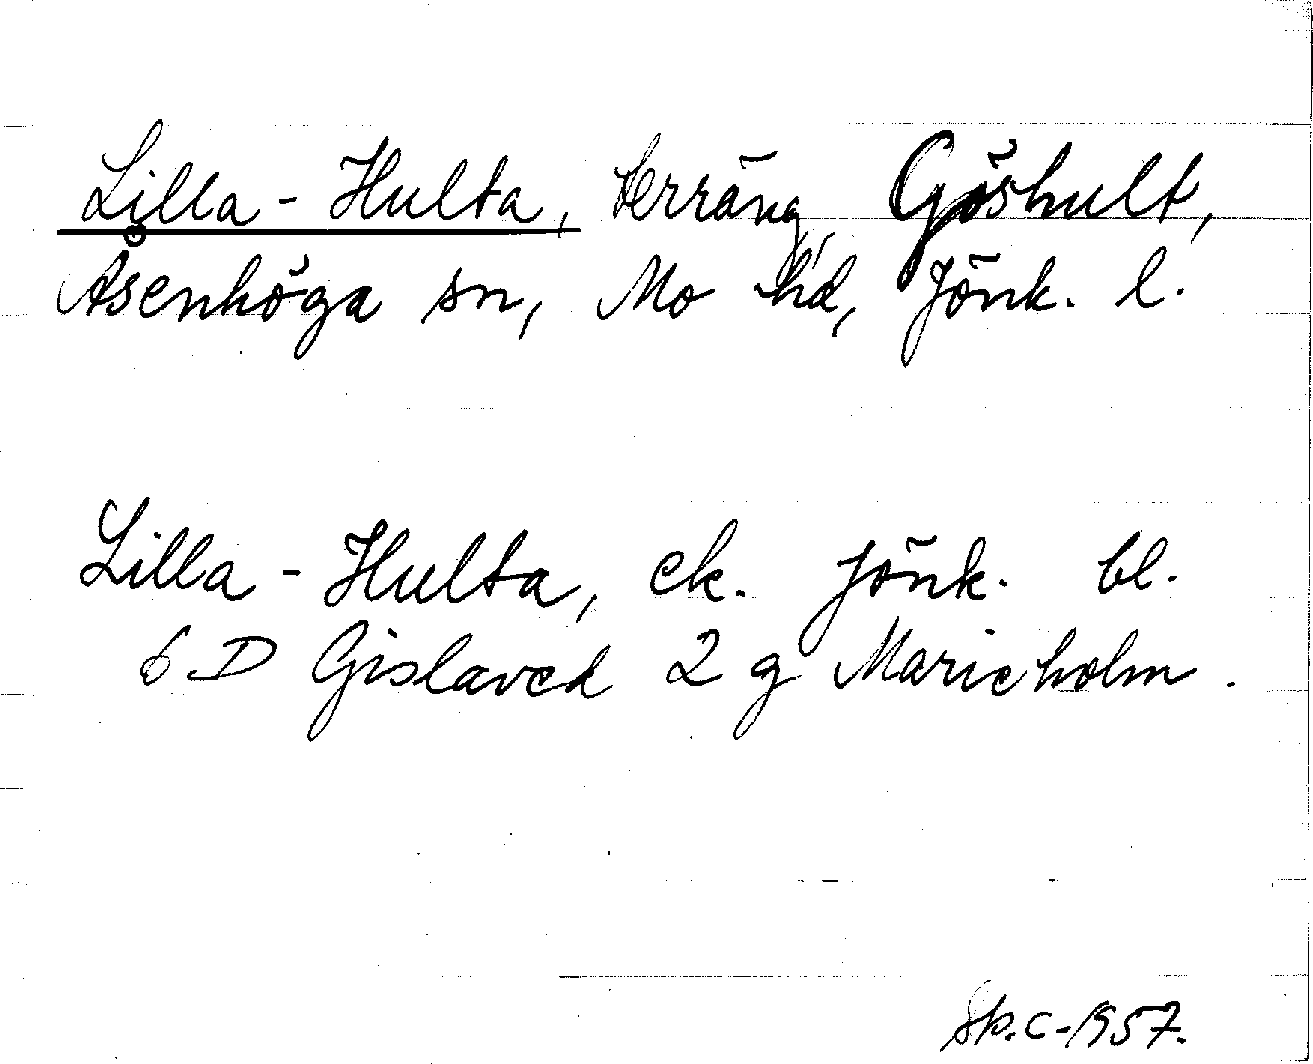 Lilla-Hulta, terräng, Göshult,
Åsenhöga sn, Mo hd, Jönk. l.
Lilla-Hulta, ek. Jönk. bl.
6 D Gislaved 2 g Marieholm.
Sk.c-1957.